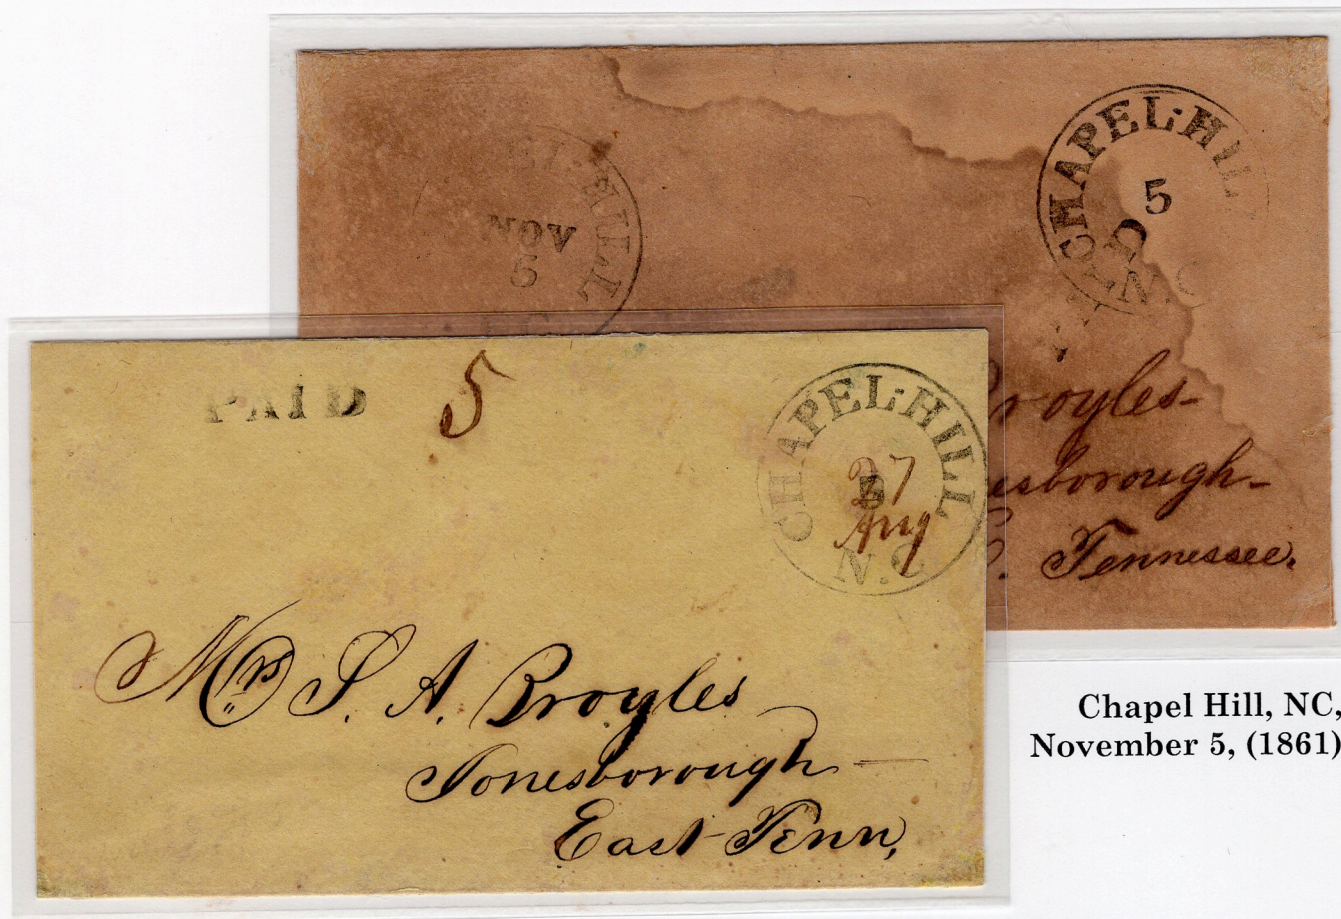 CHAPEL-HILL
N.C
5
D
HILL
NOV
5
Broyles-
esborough-
E. Tennessee.
PAID
5
CHAPEL-HILL
N.C
5
27
Aug
Mrs S. A. Broyles
Jonesborough
East Tenn,
Chapel Hill, NC,
November 5, (1861)